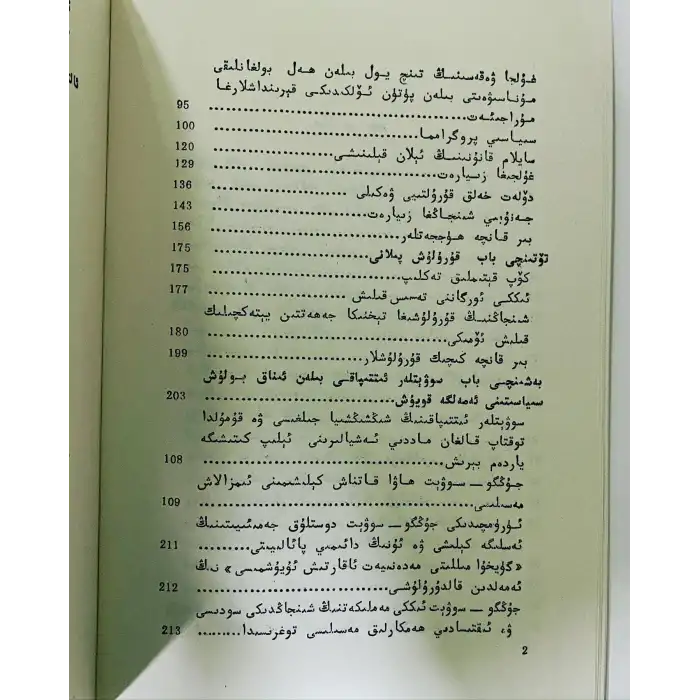 غۇلجا ۋەقەسىنىڭ تىنچ يول بىلەن ھەل بولغانلىقى
مۇناسىۋەىتى بىلەن پۈتۈن ئۆلكىدىكى قېرىنداشلارغا
مۇراجىئەت.......................................95
سىياسىي پروگرامما.......................................100
سايلام قانۇنىنىڭ ئېلان قېلىنىشى.......................................120
غۇلجىغا زىيارەت.......................................129
دۆلەت خەلق قۇرۇلتىيى ۋەكىلى.......................................136
جەنۇبىي شىنجاڭغا زىيارەت.......................................143
بىر قانچە ھۆججەتلەر.......................................156
تۆتىنچى باب قۇرۇلۇش پىلانى.......................................175
كۆپ قېتىملىق تەكلىپ.......................................175
ئىككى ئورگاننى تەسىس قىلىش.......................................177
شىنجاڭنىڭ قۇرۇلۇشىغا تېخنىكا جەھەتتىن يېتەكچىلىك
قىلىش ئۆمىكى.......................................180
بىر قانچە كىچىك قۇرۇلۇشلار.......................................199
بەشىنچى باب سوۋېتلەر ئىتتىپاقى بىلەن ئىناق بولۇش
سىياسىتىنى ئەمەلگە قويۇش.......................................203
سوۋېتلەر ئىتتىپاقىنىڭ شىڭشىڭشيا جىلغىسى ۋە قۇمۇلدا
توقتاپ قالغان ماددىي ئەشيالىرىنى ئېلىپ كىتىشىگە
ياردەم بېرىش.......................................108
جۇڭگو — سوۋېت ھاۋا قاتناش كېلىشىمىنى ئىمزالاش
مەسىلىسى.......................................109
ئۈرۈمچىدىكى جۇڭگو — سوۋېت دوستلۇق جەمئىيىتىنىڭ
ئەسلىگە كېلىشى ۋە ئۇنىڭ دائىمىي پائالىيىتى.......................................211
«گۈيخۇا مىللىتى مەدەنىيەت ئاقارتىش ئۇيۇشمىسى» نىڭ
ئەمەلدىن قالدۇرۇلۇشى.......................................212
جۇڭگو — سوۋېت ئىككى مەملىكەتنىڭ شىنجاڭدىكى سودىسى
ۋە، ئىقتىسادىي ھەمكارلىق مەسىلىسى توغرىسىدا.......................................213
2